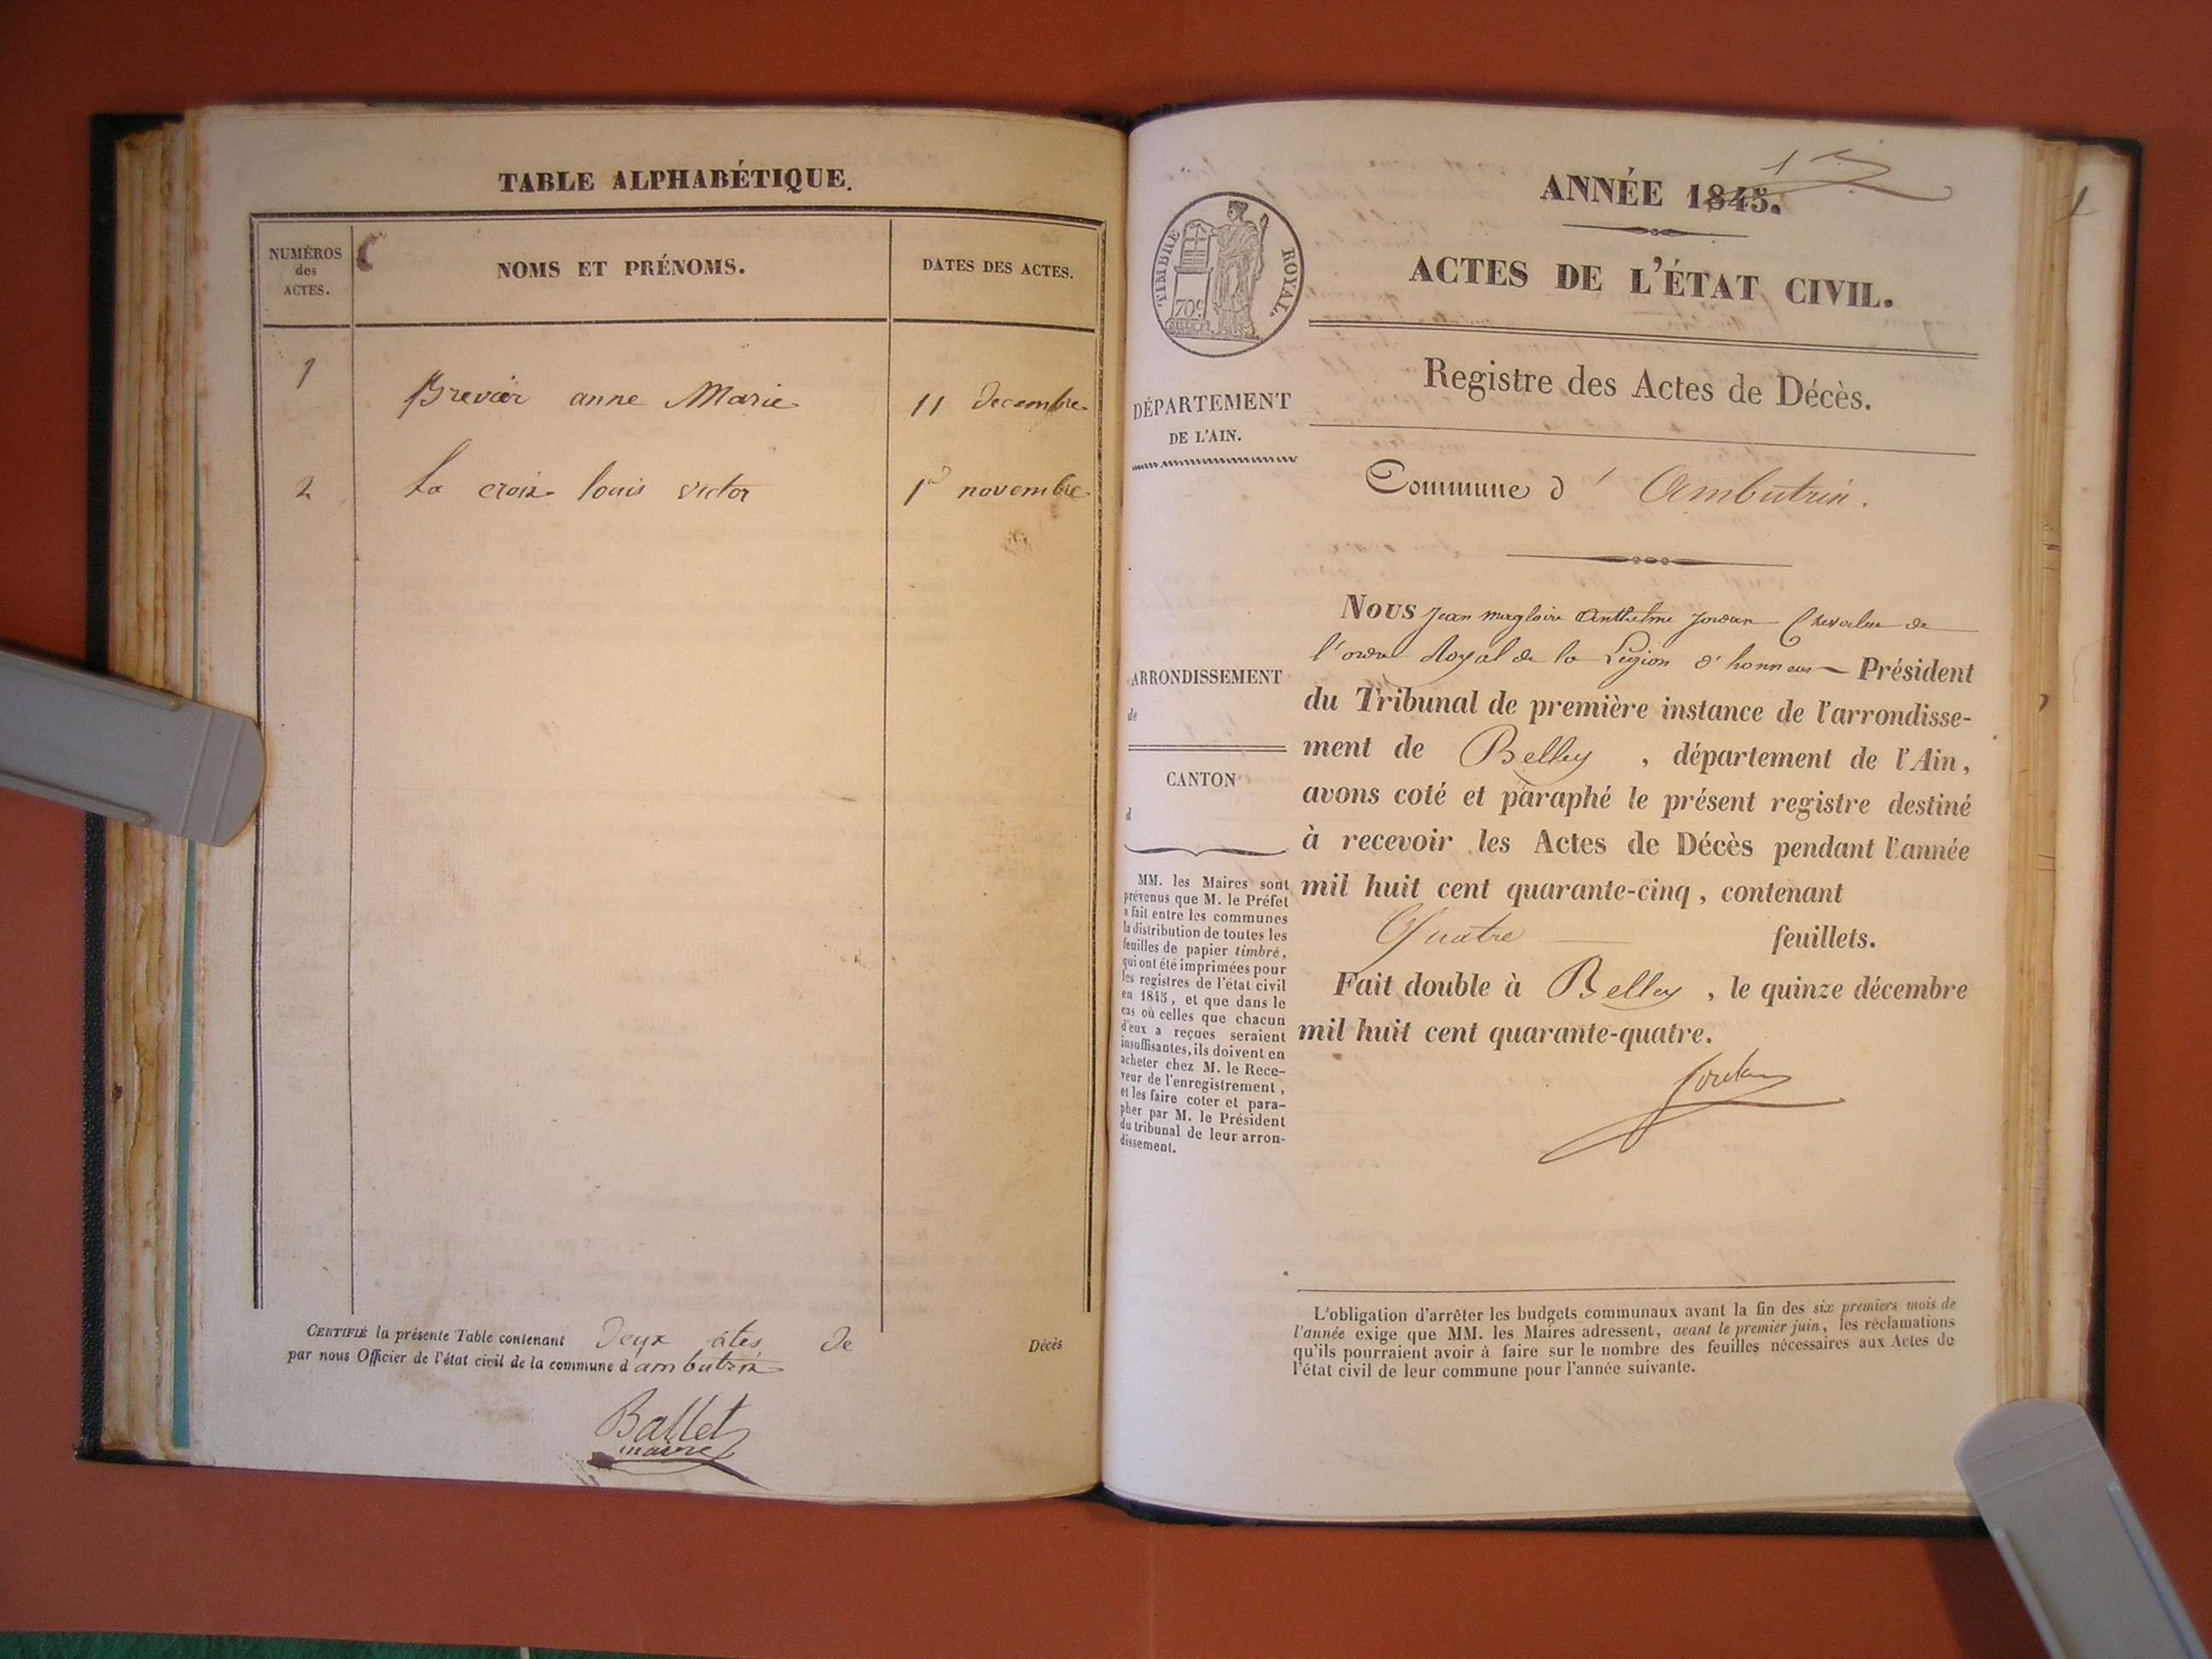 TABLE ALPHABÉTIQUE.
NUMÉROS
des
ACTES.
NOMS ET PRÉNOMS.
DATES DES ACTES.
1 Brevier anne Marie 11 decembre
2 La croix louis victor 1er novembre
CERTIFIÉ la présente Table contenant Deux âtes de Décès
par nous Officier de l'état civil de la commune d'ambutrix
Ballet
maire
ANNÉE 1845.
1er
1
TIMBRE ROYAL.
70c
ACTES DE L'ÉTAT CIVIL.
Registre des Actes de Décès.
DÉPARTEMENT
DE L'AIN.
Commune d' Ambutrin.
ARRONDISSEMENT
de
CANTON
d
MM. les Maires sont
prévenus que M. le Préfet
a fait entre les communes
la distribution de toutes les
feuilles de papier timbré,
qui ont été imprimées pour
les registres de l'état civil
en 1845, et que dans le
cas où celles que chacun
d'eux a reçues seraient
insuffisantes, ils doivent en
acheter chez M. le Rece-
veur de l'enregistrement,
et les faire coter et para-
pher par M. le Président
du tribunal de leur arron-
dissement.
Nous Jean Magloire Anthelme Jordan Chevalier de
l'ordre Royal de la Légion d'honneur Président
du Tribunal de première instance de l'arrondisse-
ment de Belley, département de l'Ain,
avons coté et paraphé le présent registre destiné
à recevoir les Actes de Décès pendant l'année
mil huit cent quarante-cinq, contenant
Quatre feuillets.
Fait double à Belley, le quinze décembre
mil huit cent quarante-quatre.
Jordan
L'obligation d'arrêter les budgets communaux avant la fin des six premiers mois de
l'année exige que MM. les Maires adressent, avant le premier juin, les réclamations
qu'ils pourraient avoir à faire sur le nombre des feuilles nécessaires aux Actes de
l'état civil de leur commune pour l'année suivante.